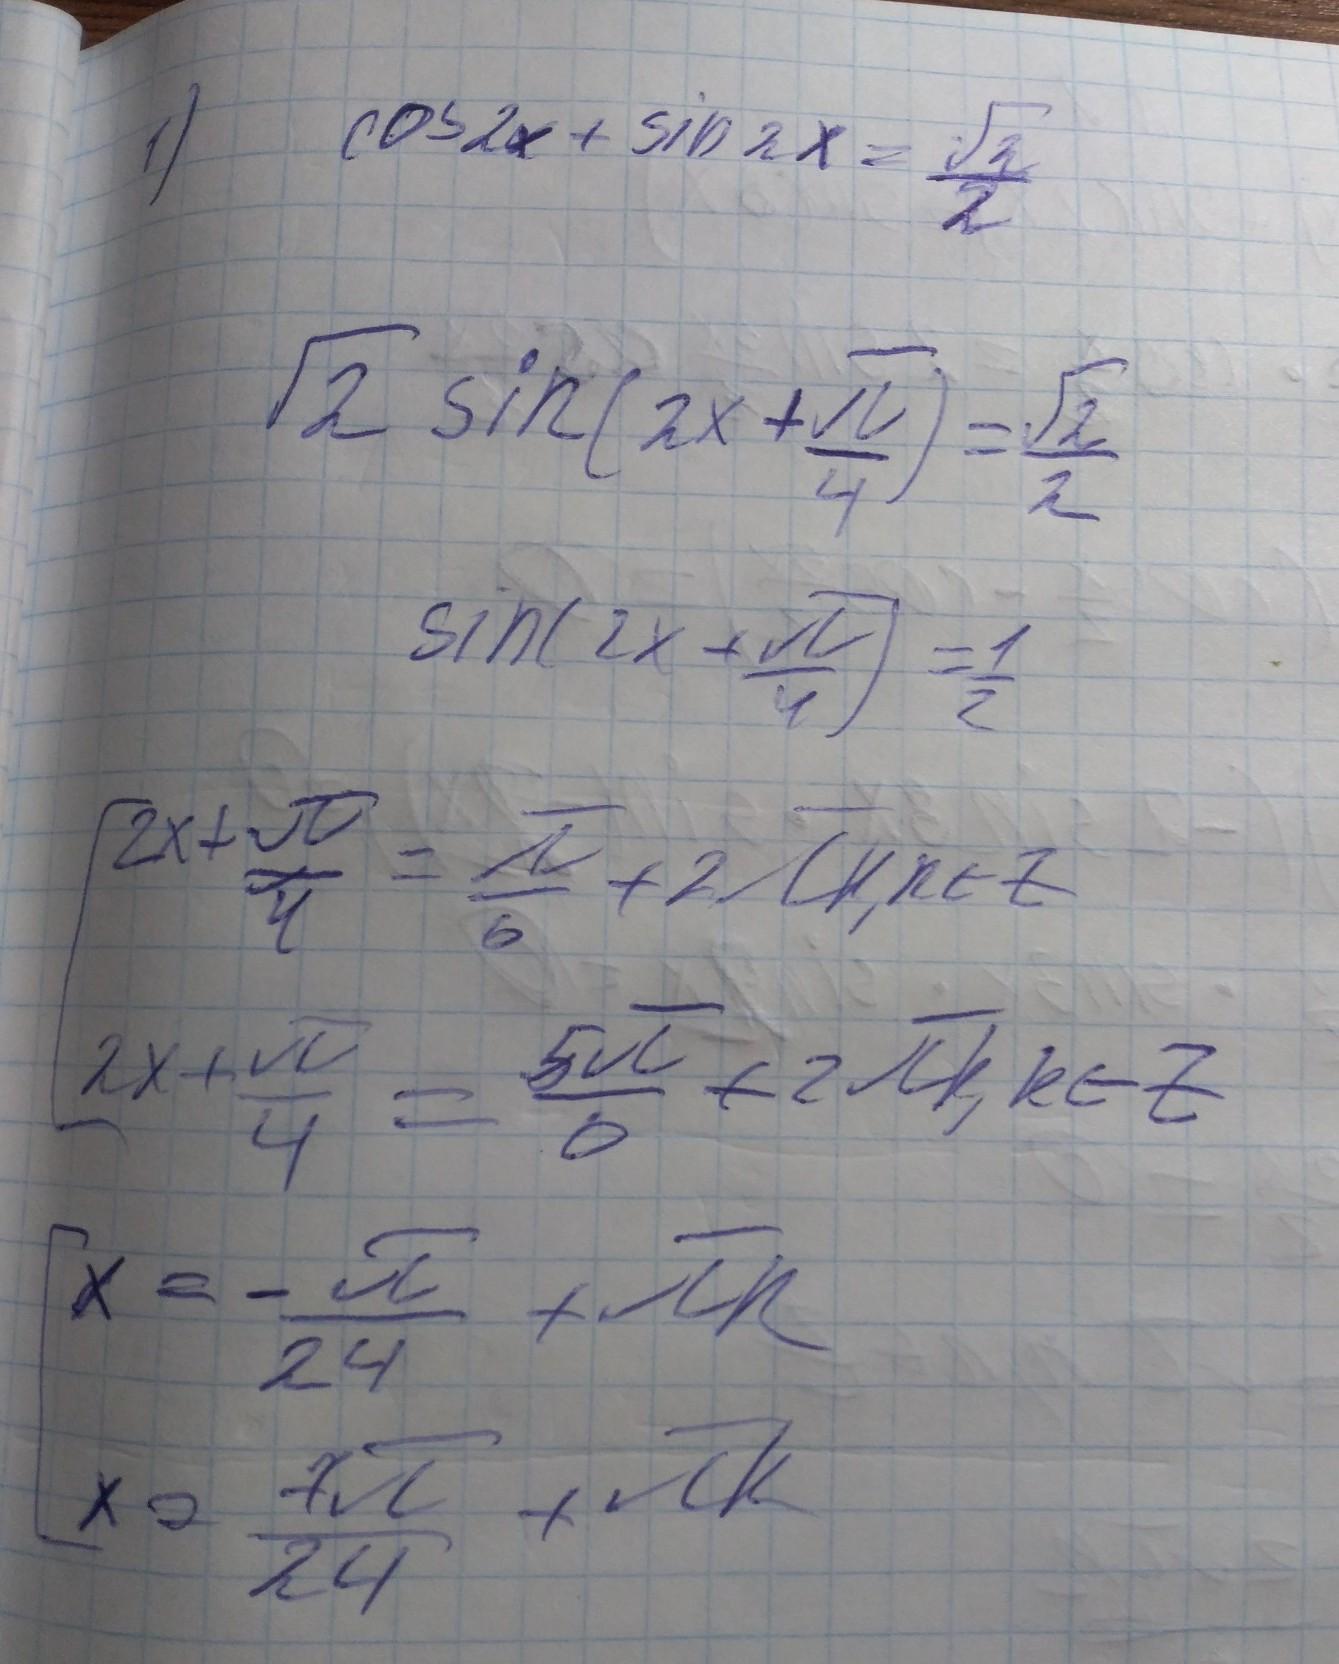 1) cos2x + sin2x = √2/2
√2 sin(2x + π/4) = √2/2
sin(2x + π/4) = 1/2
[2x + π/4 = π/6 + 2πk, k∈Z
2x + π/4 = 5π/6 + 2πk, k∈Z
[x = -π/24 + πk
x = 7π/24 + πk